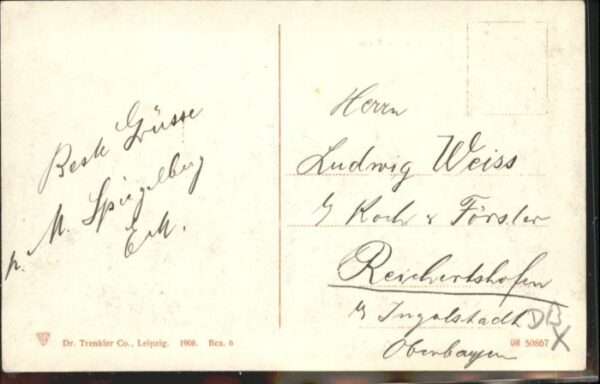 Beste Grüsse
M. Spiegelberg
Herrn
Ludwig Weiss
Koch & Förster
Reichertshofen
Ingolstadt
Oberbayern
Dr. Trenkler Co., Leipzig. 1908. Bca. 6
08 50867